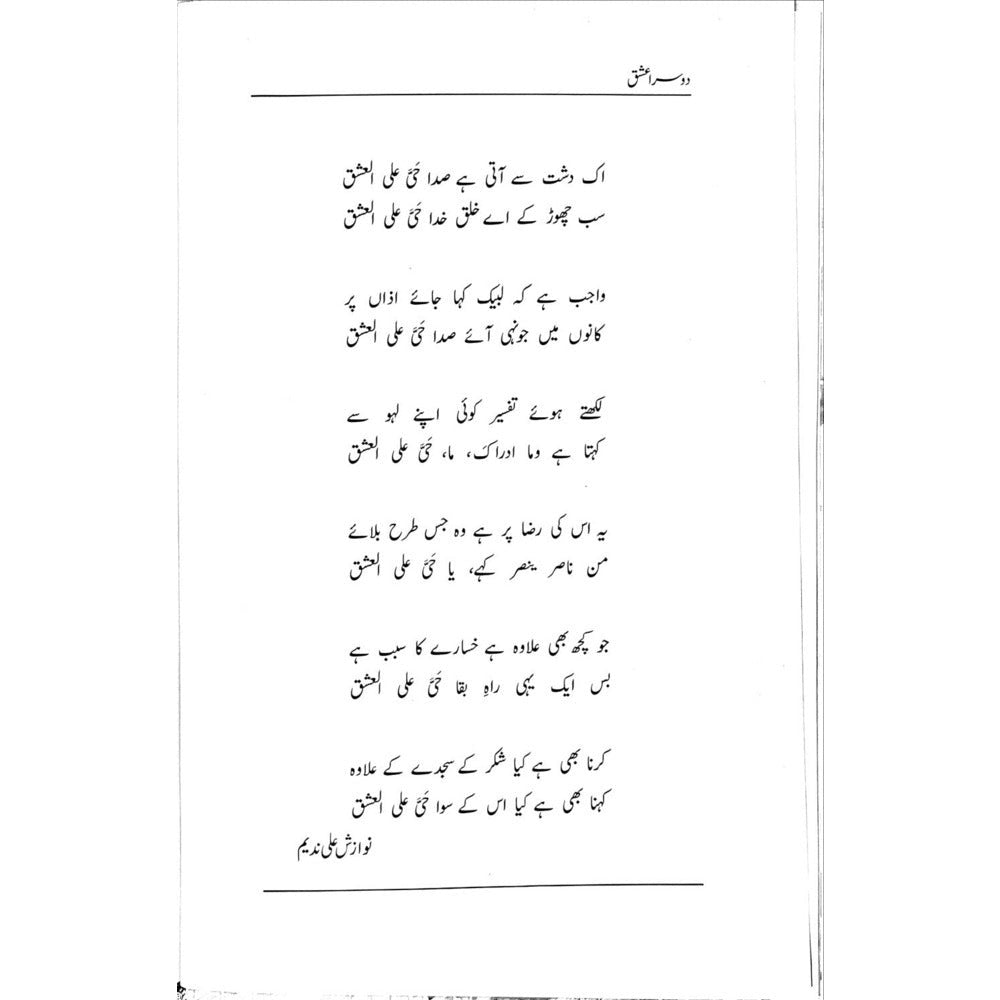 دوسرا عشق
اک دشت سے آتی ہے صدا حَیَّ علی العشق
سب چھوڑ کے اے خلق خدا حَیَّ علی العشق
واجب ہے کہ لبیک کہا جائے اذاں پر
کانوں میں جونہی آئے صدا حَیَّ علی العشق
لکھتے ہوئے تفسیر کوئی اپنے لہو سے
کہتا ہے وما ادراکَ، ما، حَیَّ علی العشق
یہ اس کی رضا پر ہے وہ جس طرح بلائے
من ناصر ینصر کہے، یا حَیَّ علی العشق
جو کچھ بھی علاوہ ہے خسارے کا سبب ہے
بس ایک یہی راہِ بقا حَیَّ علی العشق
کرنا بھی ہے کیا شکر کے سجدے کے علاوہ
کہنا بھی ہے کیا اس کے سوا حَیَّ علی العشق
نوازش علی ندیم